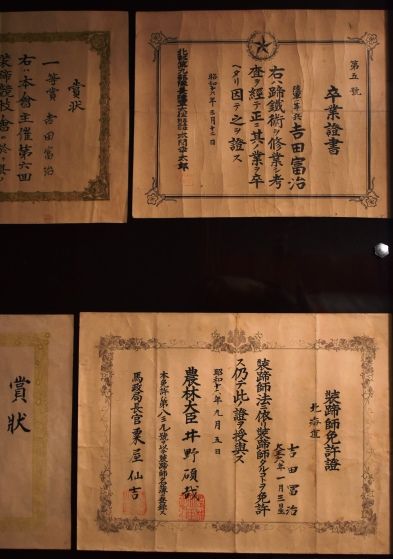 賞狀
一等賞 吉田富治
右ハ本會主催第六回
装蹄競技會ニ於テ
第五號
卒業證書
陸軍一等兵 吉田富治
右ハ蹄鐵術ヲ修業シ考
査ヲ經テ正ニ其ノ業ヲ卒
ヘタリ因テ之ヲ證ス
昭和十六年三月十二日
賞狀
装蹄師免許證
北海道
吉田冨治
大正六年一月三日生
装蹄師法ニ依リ装蹄師タルコトヲ免許
ス仍テ此ノ證ヲ授與ス
昭和十六年九月五日
農林大臣 井野碩哉
馬政局長官 粟屋仙吉